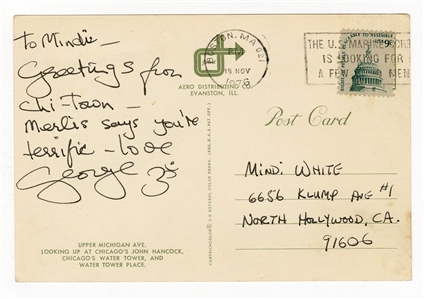 To Mindi—
Greetings from
Chi-Town—
Merlis says you're
terrific - love
George
UPPER MICHIGAN AVE.
LOOKING UP AT CHICAGO'S JOHN HANCOCK,
CHICAGO'S WATER TOWER, AND
WATER TOWER PLACE.
AERO DISTRIBUTING CO.
EVANSTON, ILL.
MA 021
15 NOV
1976
THE U.S. MARINE
IS LOOKING FOR
A FEW MEN
Post Card
MINDI WHITE
6656 KLUMP AVE #1
NORTH HOLLYWOOD, CA.
91606